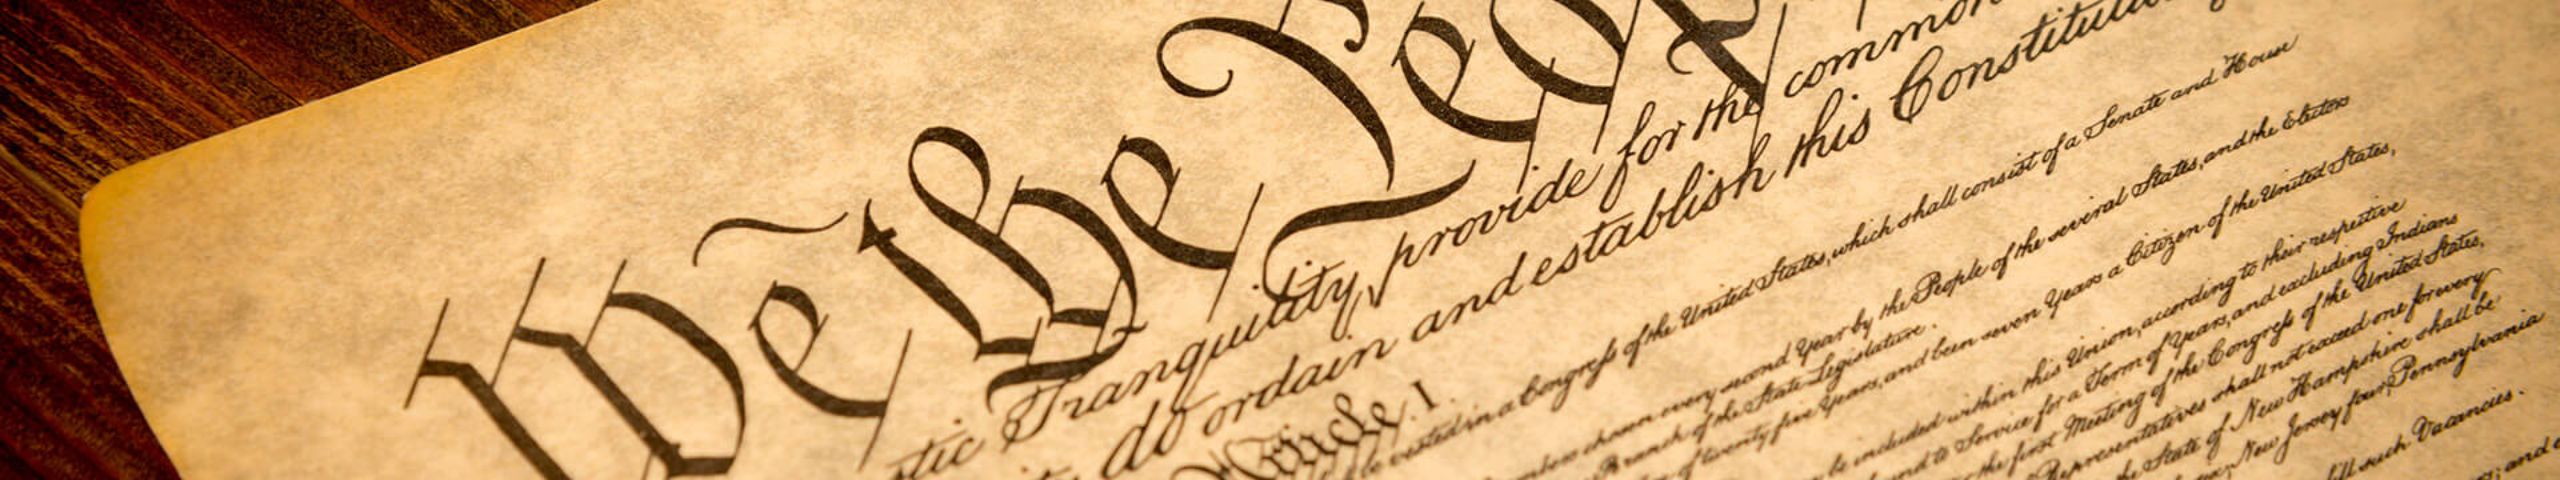 We the Peop
stic Tranquility, provide for the common
do ordain and establish this Constitution
Article. I.
be vested in a Congress of the United States, which shall consist of a Senate and House
chosen every second Year by the People of the several States, and the Electors
Branch of the State Legislature.
of twenty five Years, and been seven Years a Citizen of the United States,
be included within this Union, according to their respective
to Service for a Term of Years, and excluding Indians
the first Meeting of the Congress of the United States,
Representatives shall not exceed one for every
the State of New Hampshire shall be
New Jersey four, Pennsylvania
fill such Vacancies.
and